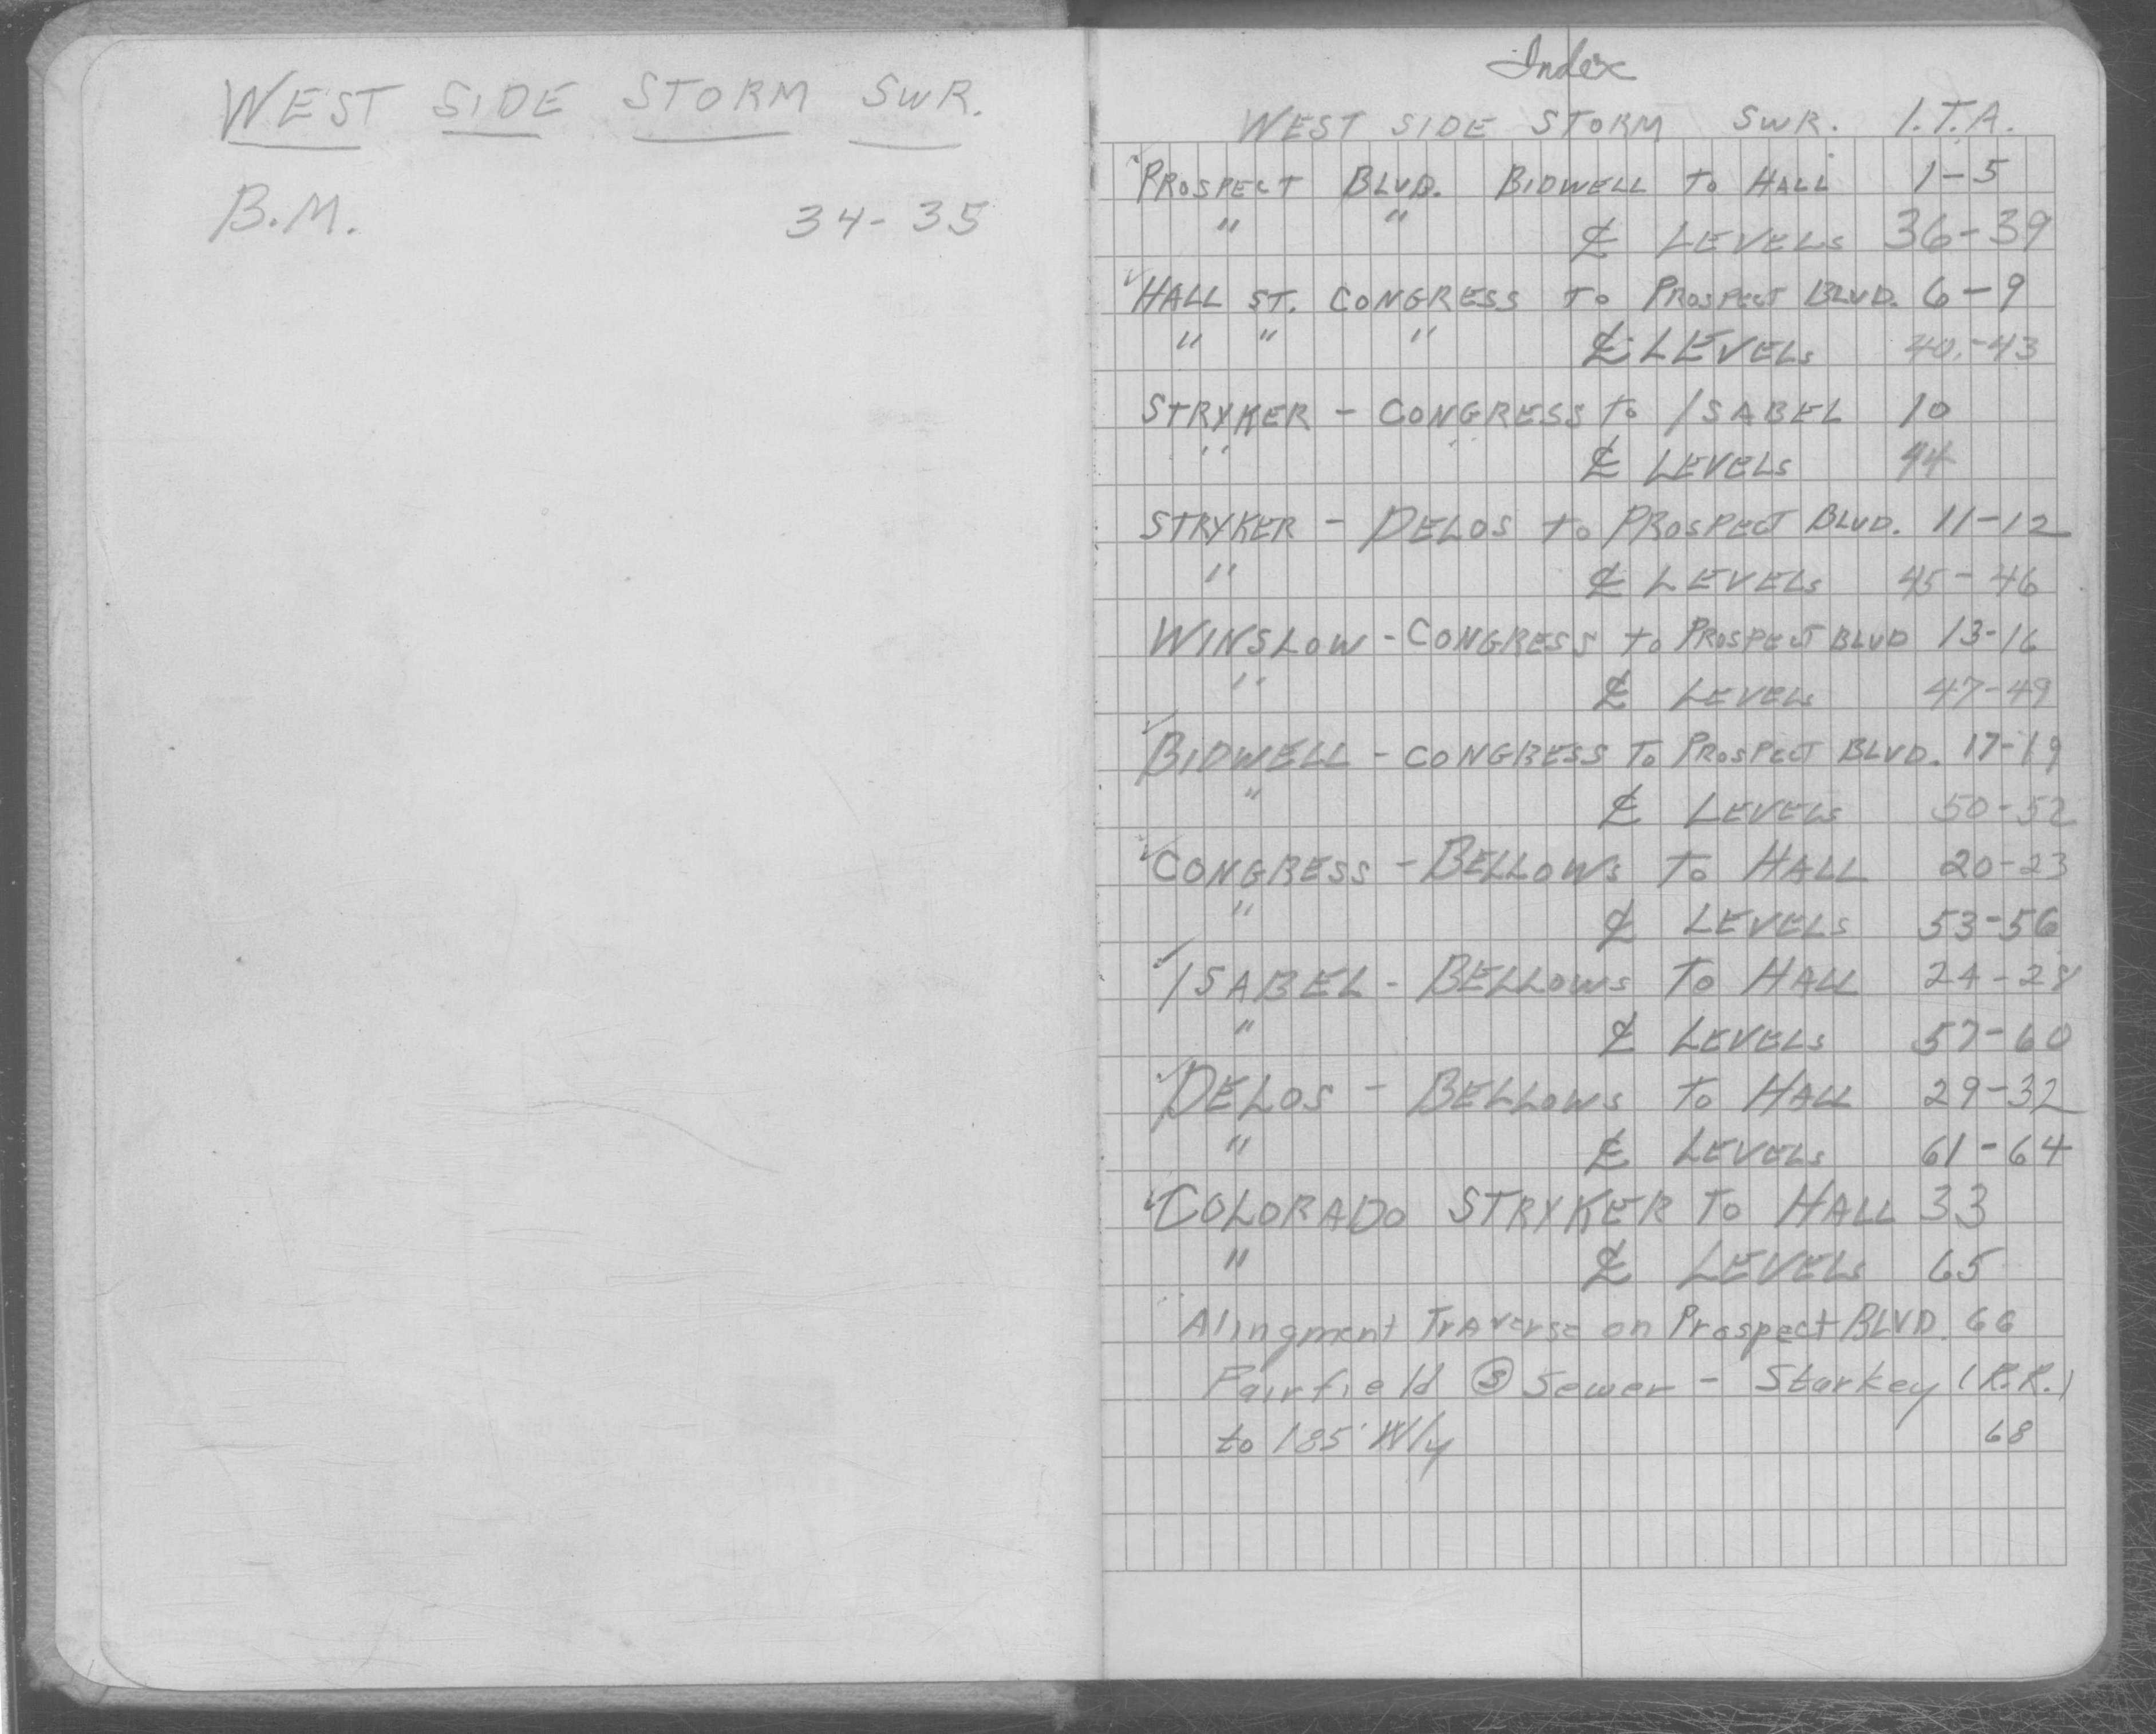 WEST SIDE STORM SWR.
B.M. 34-35
Index
WEST SIDE STORM SWR. I.T.A.
PROSPECT BLVD. BIDWELL TO HALL 1-5
" " ℄ LEVELS 36-39
HALL ST. CONGRESS TO PROSPECT BLVD. 6-9
" " " ℄ LEVELS 40-43
STRYKER - CONGRESS to ISABEL 10
" " ℄ LEVELS 44
STRYKER - DELOS to PROSPECT BLVD. 11-12
" ℄ LEVELS 45-46
WINSLOW - CONGRESS to PROSPECT BLVD 13-16
" ℄ LEVELS 47-49
BIDWELL - CONGRESS TO PROSPECT BLVD. 17-19
" ℄ LEVELS 50-52
CONGRESS - BELLOWS TO HALL 20-23
" ℄ LEVELS 53-56
ISABEL - BELLOWS TO HALL 24-28
" ℄ LEVELS 57-60
DELOS - BELLOWS TO HALL 29-32
" ℄ LEVELS 61-64
COLORADO STRYKER TO HALL 33
" ℄ LEVELS 65
Alingment Traverse on Prospect BLVD. 66
Fairfield Ⓢ Sewer - Starkey (R.R.)
to 185' W/y 68